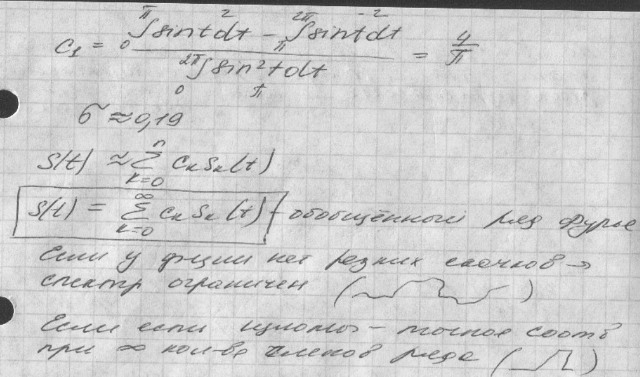 c₁ = (₀∫^π sint dt − _π∫^2π sint dt) / (₀∫^2π sin²t dt) = 4/π
2 -2
π
σ ≈ 0,19
s(t) ≈ Σ_{k=0}^{n} cₖsₖ(t)
s(t) = Σ_{k=0}^{∞} cₖsₖ(t) - обобщённый ряд Фурье
Если у ф-ции нет резких скачков →
спектр ограничен ( )
Если если изломы - точное соотв
при ∞ кол-ве членов ряда ( )